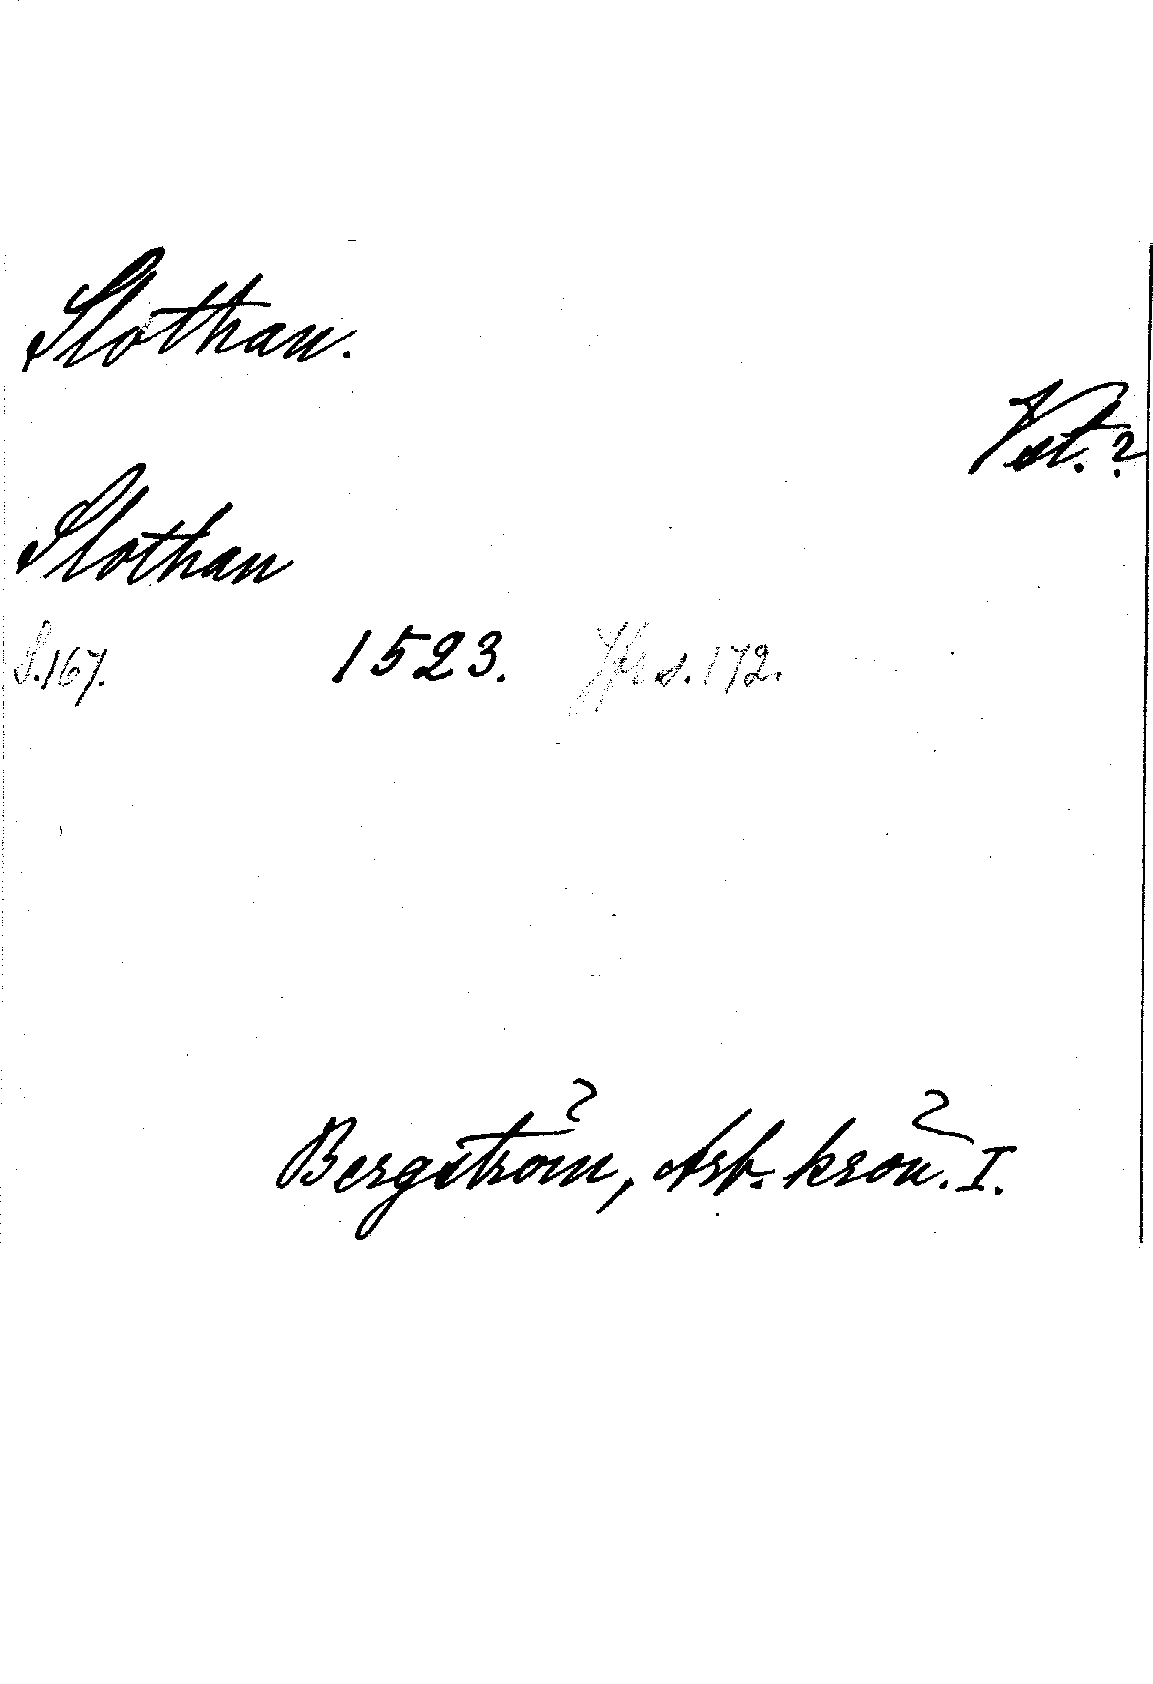 Slothan.
Vst. ?
Slothan
S. 167. 1523. Jfr s. 172.
Bergström, Arb. krön. I.